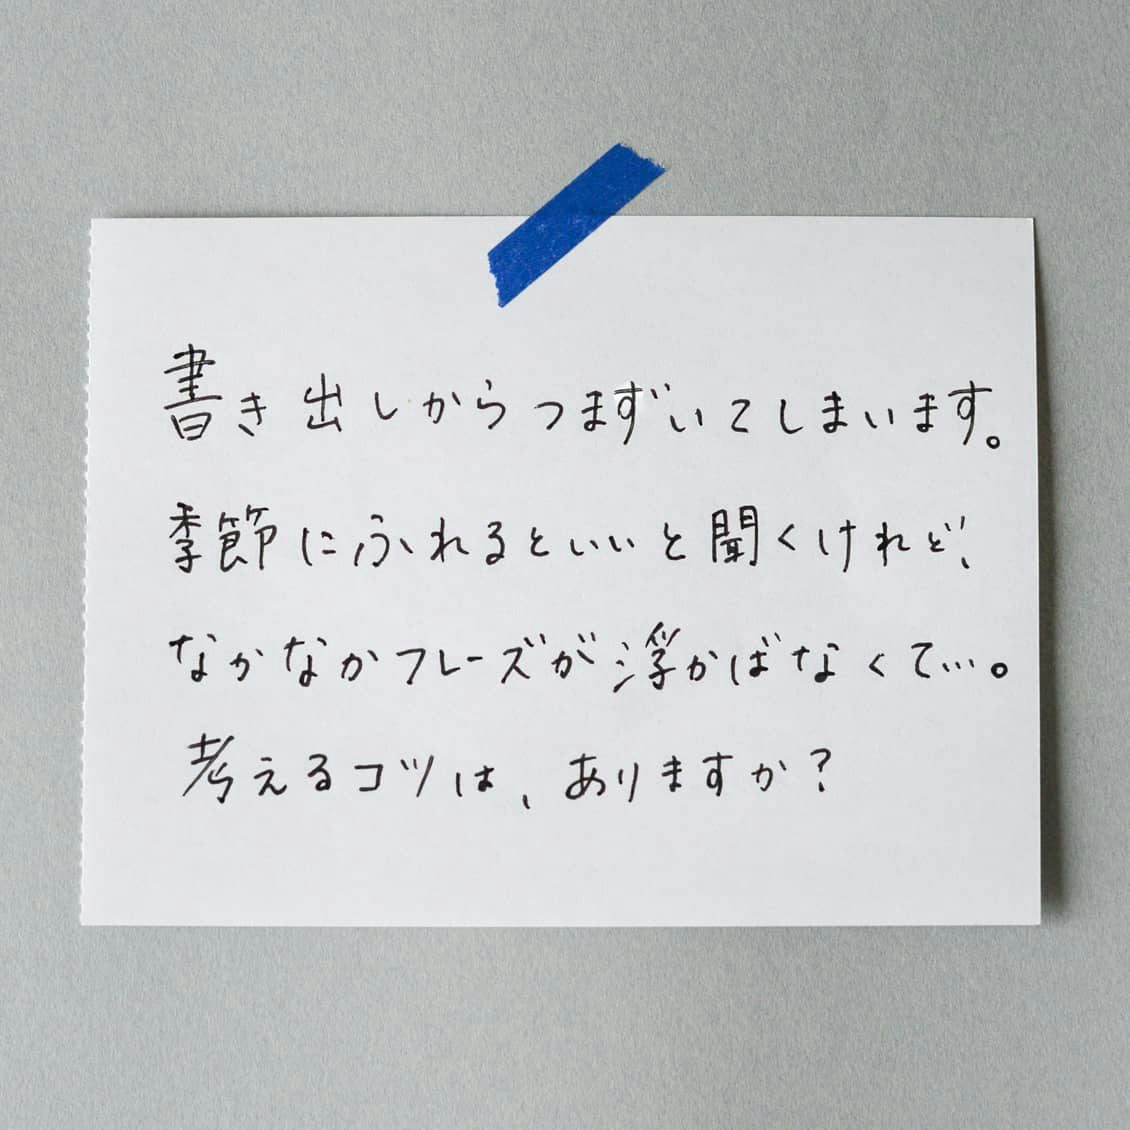 書き出しからつまずいてしまいます。
季節にふれるといいと聞くけれど、
なかなかフレーズが浮かばなくて…。
考えるコツは、ありますか？